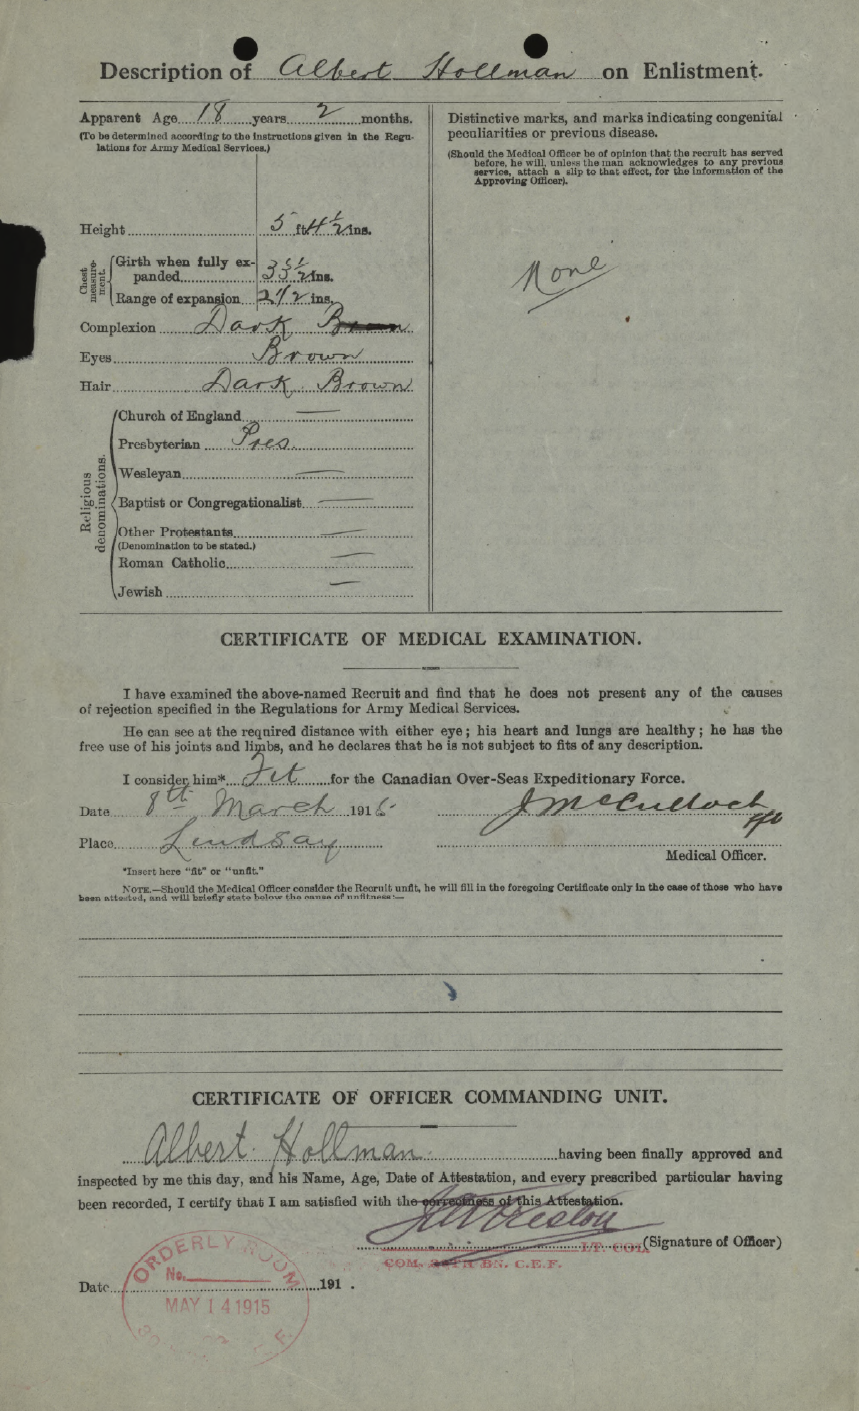 Description of Albert Hollman on Enlistment.
Apparent Age 18 years 2 months.
(To be determined according to the instructions given in the Regu-
lations for Army Medical Services.)
Height 5 ft 4 1/2 ins.
Chest
measure-
ment.
Girth when fully ex-
panded 33 1/2 ins.
Range of expansion 2 1/2 ins.
Complexion Dark
Eyes Brown
Hair Dark Brown
Religious
denominations.
Church of England —
Presbyterian Pres.
Wesleyan —
Baptist or Congregationalist —
Other Protestants —
(Denomination to be stated.)
Roman Catholic —
Jewish —
Distinctive marks, and marks indicating congenital
peculiarities or previous disease.
(Should the Medical Officer be of opinion that the recruit has served
before, he will, unless the man acknowledges to any previous
service, attach a slip to that effect, for the information of the
Approving Officer).
None
CERTIFICATE OF MEDICAL EXAMINATION.
I have examined the above-named Recruit and find that he does not present any of the causes
of rejection specified in the Regulations for Army Medical Services.
He can see at the required distance with either eye; his heart and lungs are healthy; he has the
free use of his joints and limbs, and he declares that he is not subject to fits of any description.
I consider him* Fit for the Canadian Over-Seas Expeditionary Force.
Date 8th March 191
J McCulloch
Place Lindsay
Medical Officer.
*Insert here "fit" or "unfit."
NOTE.—Should the Medical Officer consider the Recruit unfit, he will fill in the foregoing Certificate only in the case of those who have
been attested, and will briefly state below the cause of unfitness:—
CERTIFICATE OF OFFICER COMMANDING UNIT.
Albert Hollman having been finally approved and
inspected by me this day, and his Name, Age, Date of Attestation, and every prescribed particular having
been recorded, I certify that I am satisfied with the correctness of this Attestation.
Preston
(Signature of Officer)
LT. COL.
COM. BN. C.E.F.
Date 191 .
ORDERLY ROOM
No.
MAY 14 1915